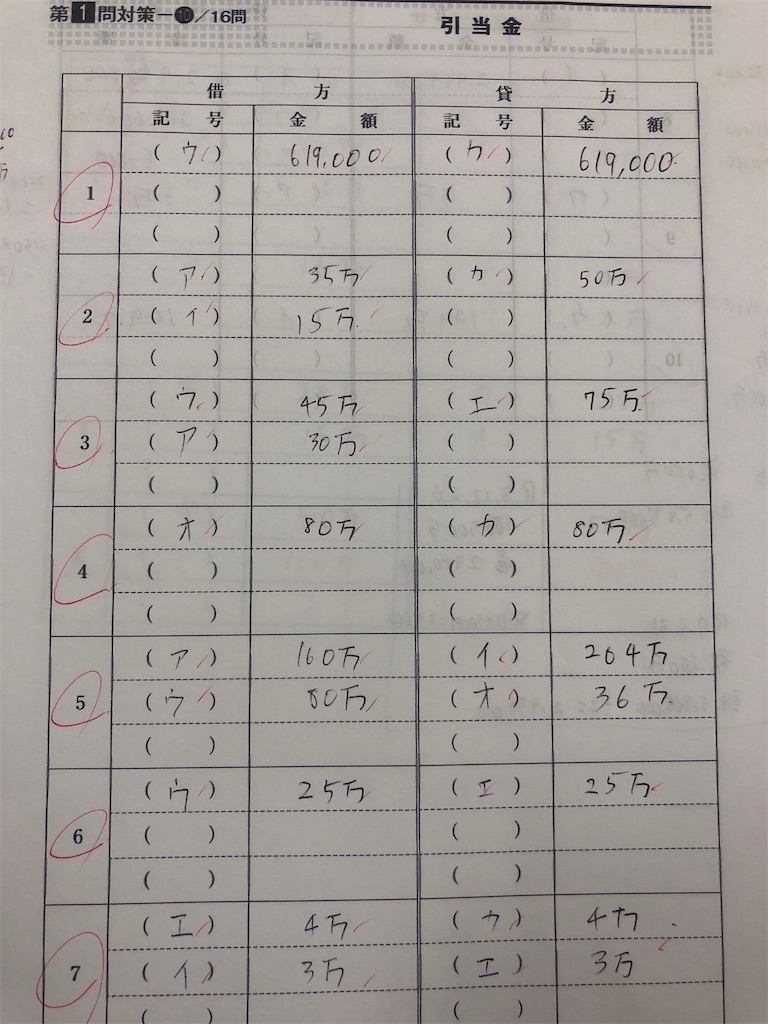 第1問対策-⑩/16問
引当金
借 方 貸 方
記 号 金 額 記 号 金 額
1 ( ウ ) 619,000 ( ウ ) 619,000
( ) ( )
( ) ( )
2 ( ア ) 35万 ( カ ) 50万
( イ ) 15万 ( )
( ) ( )
3 ( ウ ) 45万 ( エ ) 75万
( ア ) 30万 ( )
( ) ( )
4 ( オ ) 80万 ( カ ) 80万
( ) ( )
( ) ( )
5 ( ア ) 160万 ( イ ) 204万
( ウ ) 80万 ( オ ) 36万
( ) ( )
6 ( ウ ) 25万 ( エ ) 25万
( ) ( )
( ) ( )
7 ( エ ) 4万 ( ウ ) 4万
( イ ) 3万 ( エ ) 3万
( ) ( )